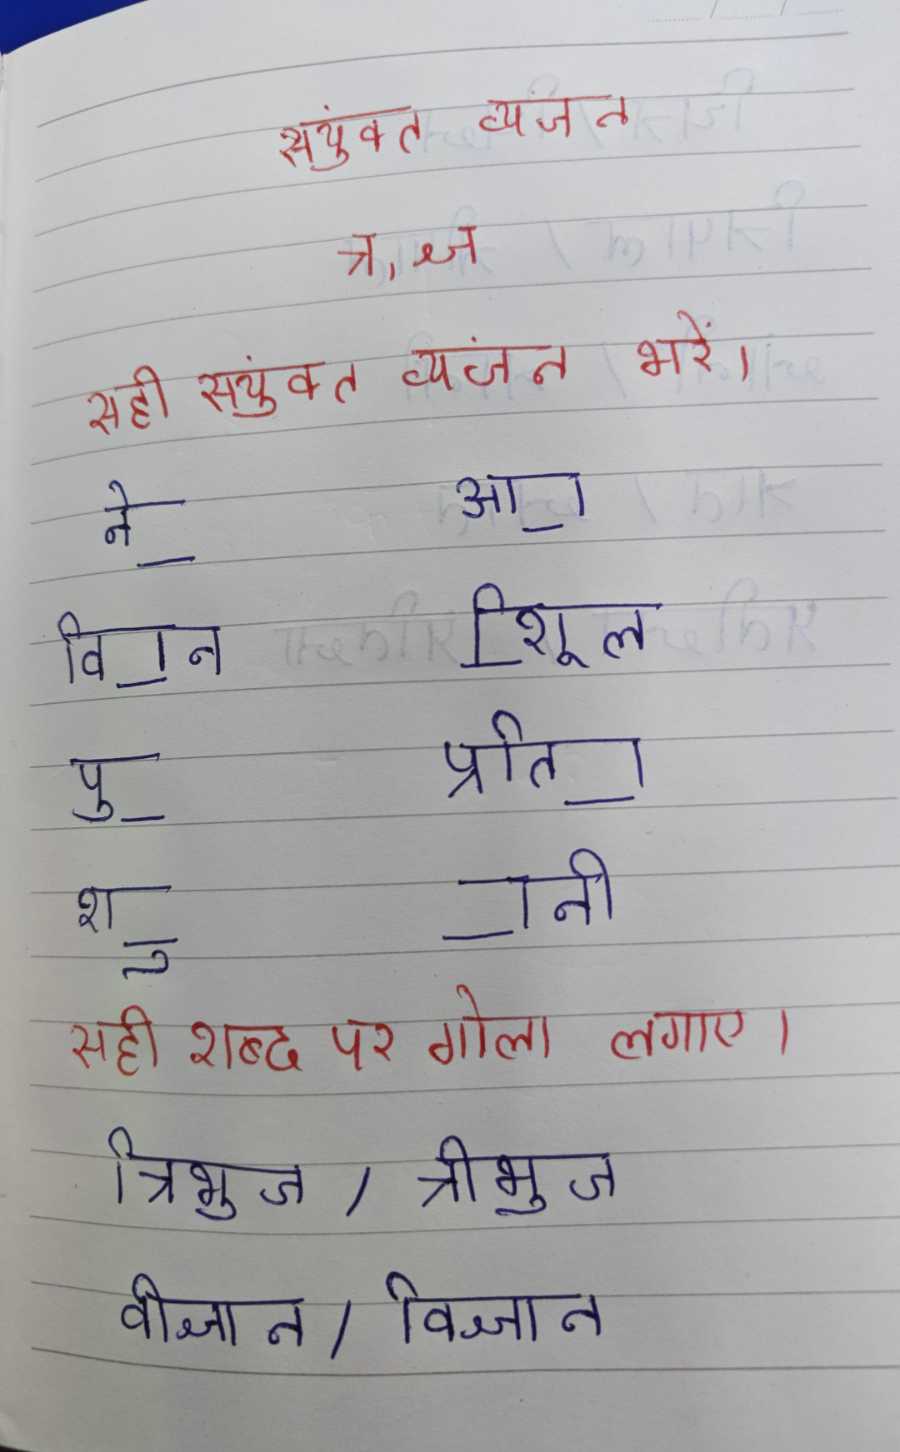 संयुंक्त व्यंजन
त्र, ज्ञ
सही संयुंक्त व्यंजन भरें।
ने_ आ_ा
वि_ान _िशूल
पु_ प्रति_ा
श_ु _ानी
सही शब्द पर गोला लगाए।
त्रिभुज / त्रीभुज
वीज्ञान / विज्ञान